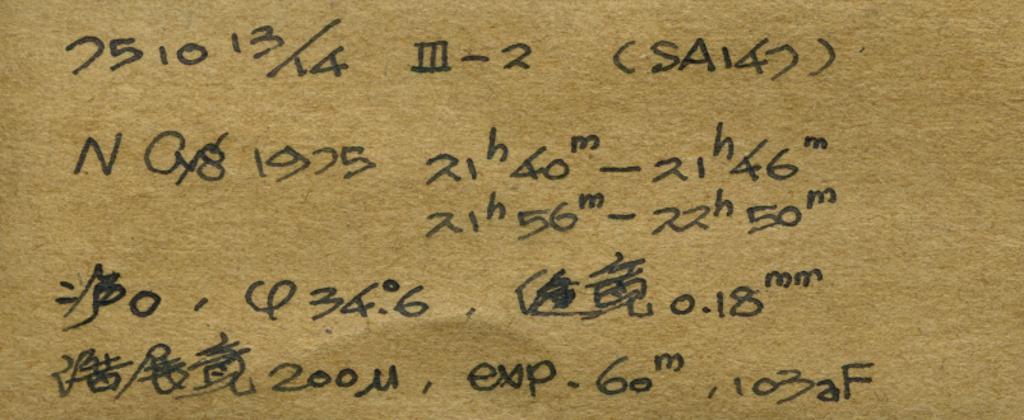 7510 13/14 III-2 (SA147)
N Cyg 1975 21h40m-21h46m
21h56m-22h50m
0, φ34.°6, 0.18mm
200μ, exp. 60m, 103aF